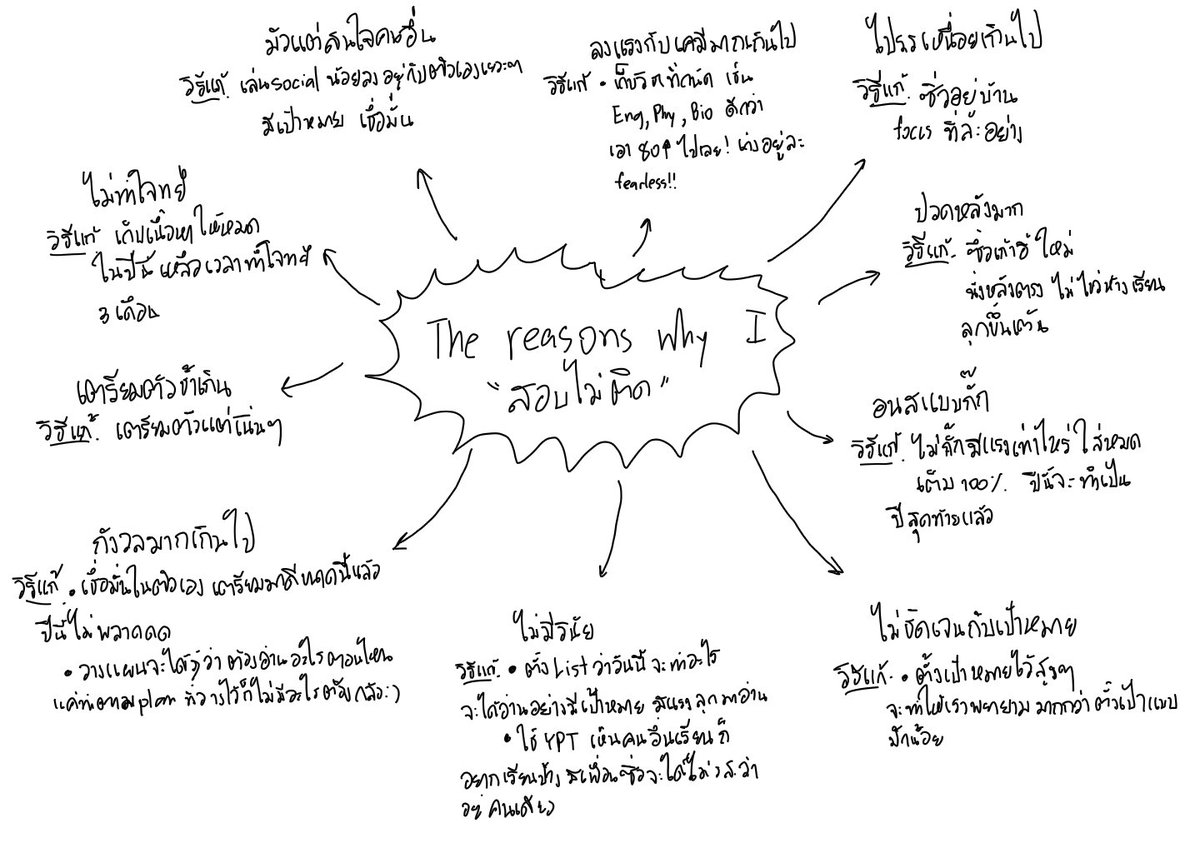 The reasons why I
"สอบไม่ติด"
มัวแต่สนใจคนอื่น
วิธีแก้ เล่นsocial น้อยลง อยู่กับตัวเองเยอะๆ
มีเป้าหมาย เชื่อมั่น
ลงแรงกับเคมีมากเกินไป
วิธีแก้ • เก็บวิชาที่ถนัด เช่น
Eng, Phy, Bio ดีกว่า
เอา 80↑ ไปเลย! เก่งอยู่ละ
fearless!!
ไปรร เหนื่อยเกินไป
วิธีแก้. ซิ่วอยู่บ้าน
focus ทีล่ะอย่าง
ปวดหลังมาก
วิธีแก้. ซื้อเก้าอี้ ใหม่
นั่งหลังตรง ไม่ไขว่ห้าง เรียน
ลุกขึ้นเดิน
อ่านสแบบกั๊ก
วิธีแก้. ไม่กั๊ก มีแรงเท่าไหร่ ใส่หมด
เต็ม 100%. ปีนี้จะทำเป็น
ปีสุดท้ายแล้ว
ไม่ชัดเจนกับเป้าหมาย
วิธีแก้. • ตั้งเป้าหมายไว้สูงๆ
จะทำให้เราพยายาม มากกว่า ตั้งเป้าแบบ
มักน้อย
ไม่มีวินัย
วิธีแก้. • ตั้ง List ว่าวันนี้ จะทำอะไร
จะได้อ่านอย่างมีเป้าหมาย มีแรงลุกมาอ่าน
• ใช้ YPT เห็นคนอื่นเรียนก็
อยากเรียนบ้าง มีเพื่อนซิ่วจะได้ไม่
อยู่คนเดียว
กังวลมากเกินไป
วิธีแก้ • เชื่อมั่นในตัวเอง เตรียมมาดีขนาดนี้แล้ว
ปีนี้ไม่พลาดดด
• วางแผนจะได้รู้ว่า ต้องอ่านอะไรตอนไหน
แค่ทำตามplan ที่วางไว้ก็ไม่มีอะไรต้องกลัว:)
เตรียมตัวช้าเกิน
วิธีแก้. เตรียมตัวแต่เนิ่นๆ
ไม่ทำโจทย์
วิธีแก้ เก็บเนื้อหาให้หมด
ในปีนี้ เหลือเวลาทำโจทย์
3 เดือน